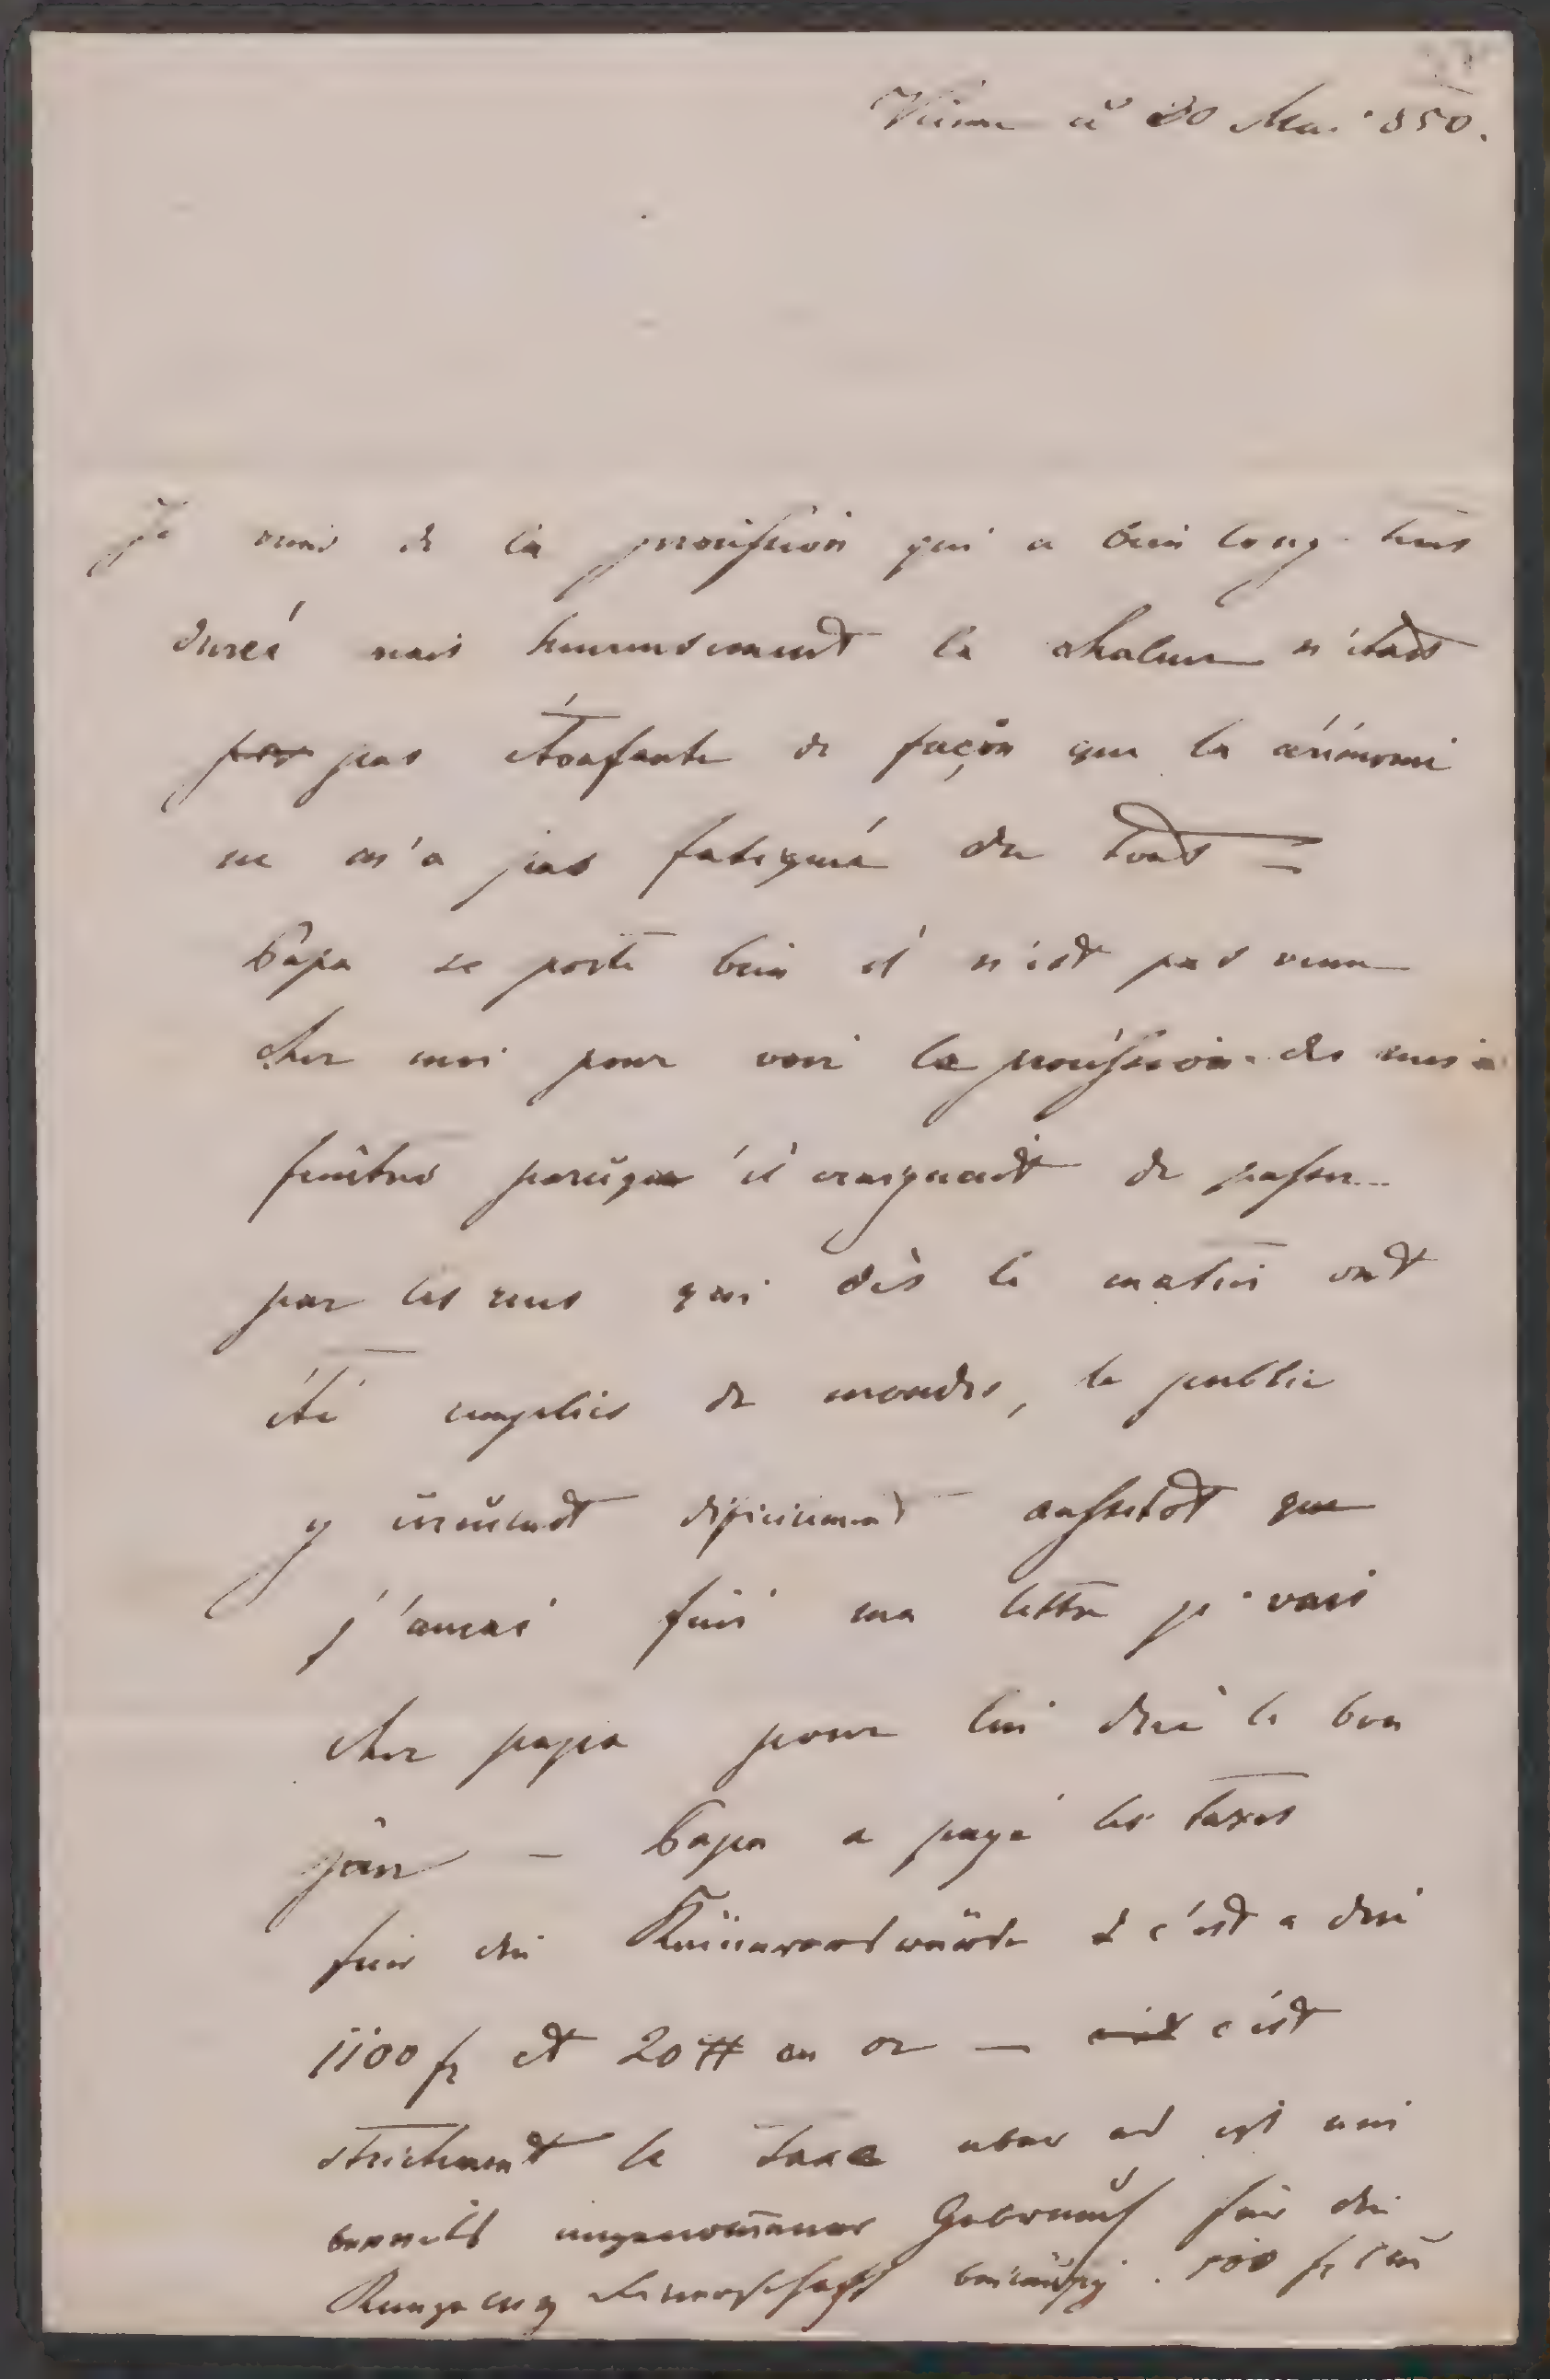 Vienne ce 30 Mai 850.
Je viens de la procession qui a bien long-tems
durée mais heureusement la chaleur n'était
pas pas étoufante de façon que la cérémonie
ne m'a pas fatigué du tout =
Papa se porte bien il n'est pas venu
chez moi pour voir la procession des mes
fenêtres parceque il craignait de passer
par les rues qui dès le matin ont
été remplies de mondes, le public
y circulait dificilement aussitôt que
j'aurai fini ma lettre je vais
cher papa pour lui dire le bon
jour — Papa a payé les taxes
für die Kämmererswürde c'est a dire
1100 fr et 20 # en or — c'est c'est
strictement la taxe aber es ist ein
bereits angenommener Gebrauch für die
Dienerschaft beiläufig 100 fr CM